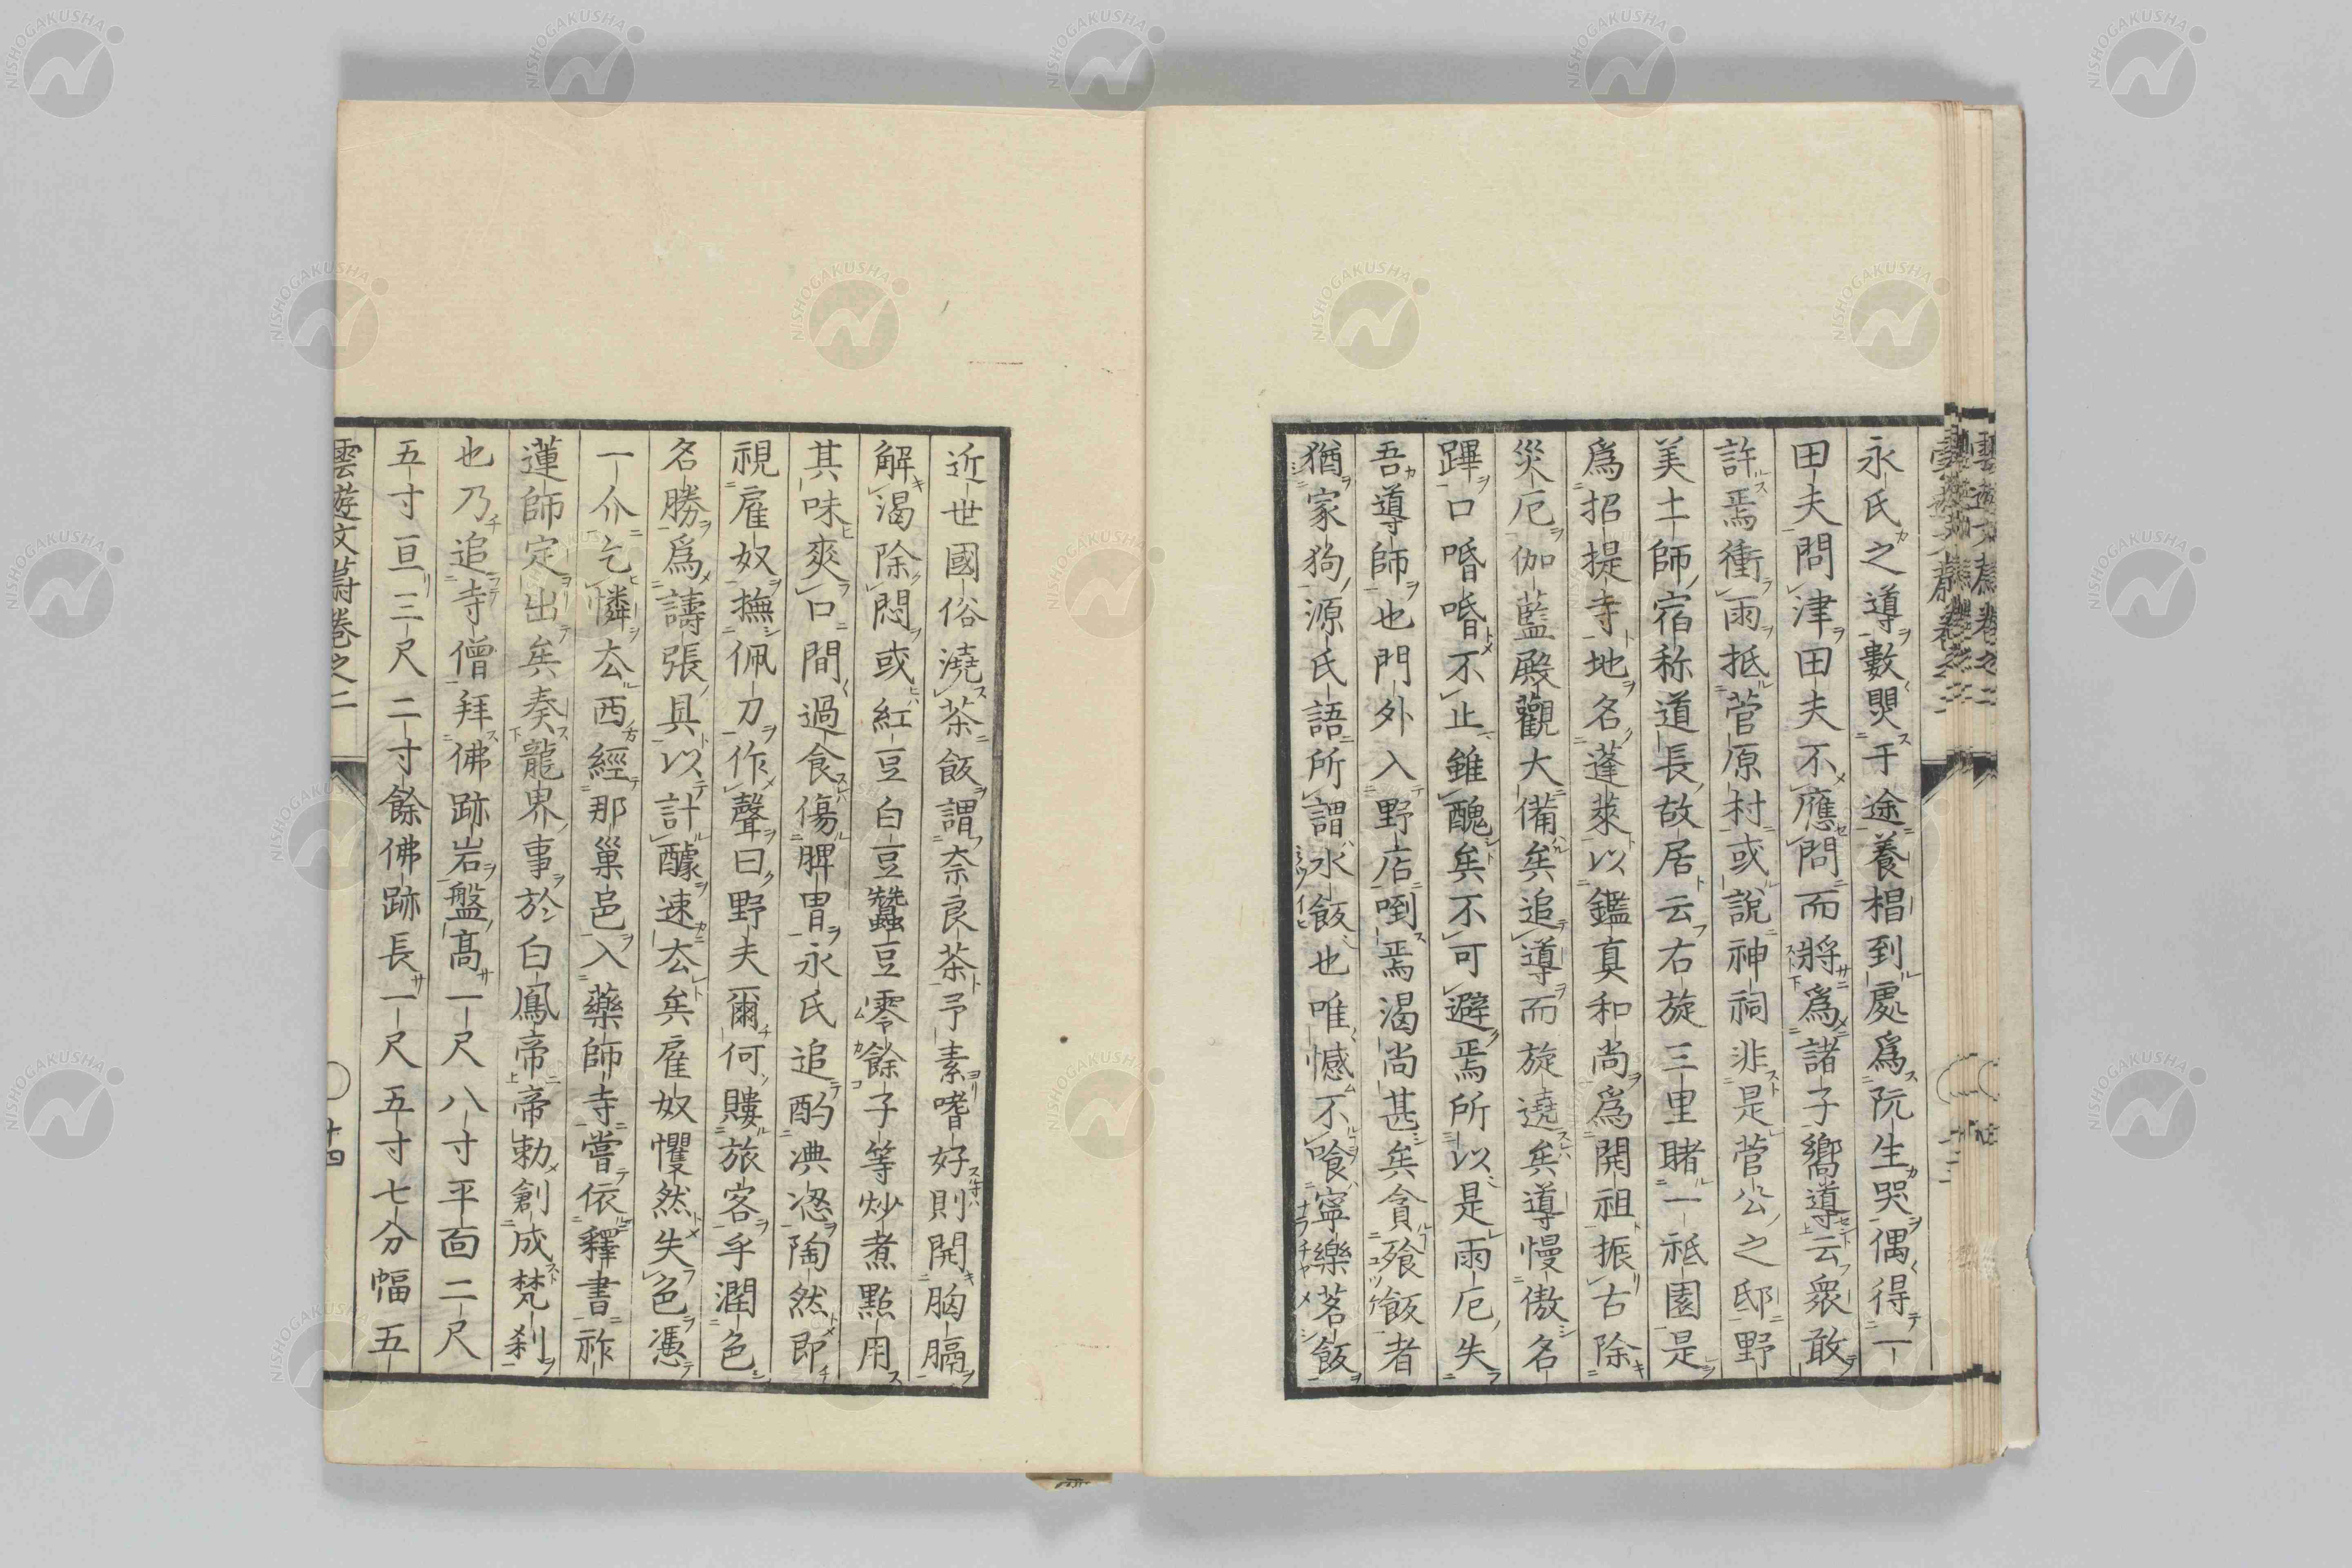 永氏之導數煛于途養榥到處爲阮生哭偶得一
田夫問津田夫不應問而將爲諸子嚮導云衆敢
許焉衝雨抵菅原村或說神祠非是菅公之邸野
美土師宿称道長故居云右旋三里睹一祗園是
爲招提寺地名名蓬萊以鑑真和尚爲開祖振古除
災厄伽藍殿觀大備矣追導而旋遶矣導慢傲名
蹕口㖧㖧不止雖醜矣不可避焉所以是雨厄失
吾導師也門外入野店㘞焉渴尚甚矣貪飱飯者
猶家狗源氏語所謂水飯也唯憾不喰寧樂茗飯
近世國俗澆茶飯謂奈良茶予素嗜好則開胸膈
解渴除悶或紅豆白豆蠶豆零餘子等炒煮點用
其味爽口間過食傷脾胃永氏追酌淟㴽陶然即
視雇奴撫佩刀作聲曰野夫爾何賺旅客乎潤色
名勝爲譸張具以計醵速去矣雇奴懼然失色憑
一介乞憐去西經那巢邑入藥師寺嘗依釋書祚
蓮師定出矣奏龍界事於白鳳帝帝勅創成梵刹
也乃追寺僧拜佛跡岩盤高一尺八寸平面二尺
五寸亘三尺二寸餘佛跡長一尺五寸七分幅五
雲遊文蔚卷之二
十四